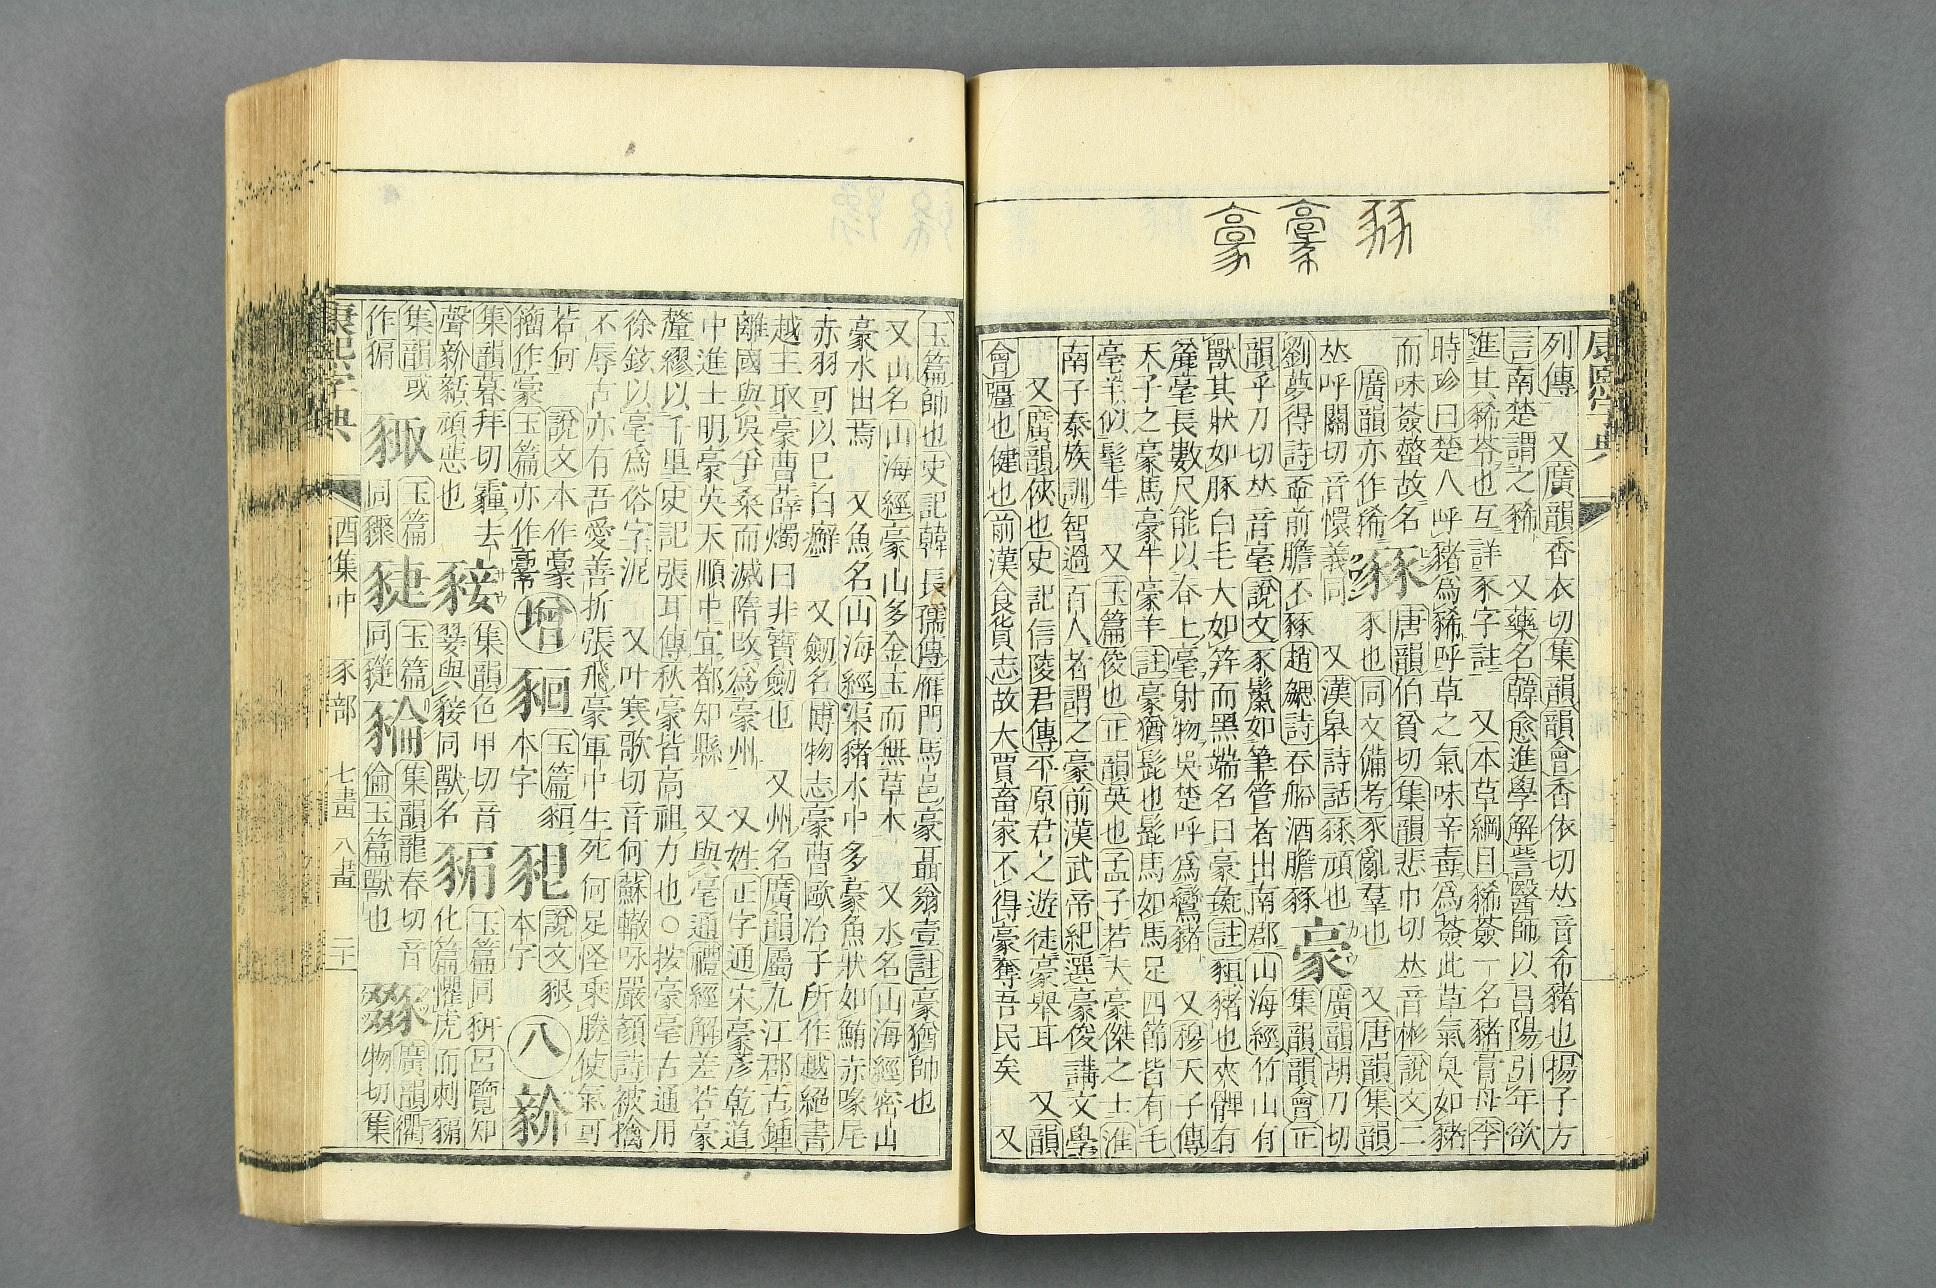 豩 豪
康熙字典
列傳 又廣韻香衣切集韻韻會香依切𠀤音希豬也揚子方
言南楚謂之豨 又藥名韓愈進學解訾醫師以昌陽引年欲
進其豨苓也互詳豕字註 又本草綱目豨薟一名豬膏母李
時珍曰楚人呼豬爲豨呼草之氣味辛毒爲薟此草氣臭如豬
而味薟螫故名
廣韻亦作狶
豩
唐韻伯貧切集韻悲巾切𠀤音彬說文二
豕也同文備考豕亂羣也 又唐韻集韻
𠀤呼關切音懁義同 又漢臯詩話豩頑也
劉夢得詩盃前膽不豩趙勰詩吞船酒膽豩
豪
廣韻胡刀切
集韻韻會正
韻乎刀切𠀤音毫說文豕鬣如筆管者出南郡山海經竹山有
獸其狀如豚白毛大如筓而黑端名曰豪彘註貆豬也夾髀有
麤毫長數尺能以脊上毫射物吳楚呼爲鸞豬 又穆天子傳
天子之豪馬豪牛豪羊註豪猶髭也髭馬如馬足四節皆有毛
毫羊似髦牛 又玉篇俊也正韻英也孟子若夫豪傑之士淮
南子泰族訓智過百人者謂之豪前漢武帝紀選豪俊講文學
又廣韻俠也史記信陵君傳平原君之遊徒豪舉耳 又韻
會彊也健也前漢食貨志故大賈畜家不得豪奪吾民矣 又
玉篇帥也史記韓長孺傳鴈門馬邑豪聶翁壹註豪猶帥也
又山名山海經豪山多金玉而無草木 又水名山海經密山
豪水出焉 又魚名山海經渠豬水中多豪魚狀如鮪赤喙尾
赤羽可以已白癬 又劒名博物志豪曹歐冶子所作越絕書
越王取豪曹薛燭曰非寶劒也 又州名廣韻屬九江郡古鍾
離國與吳爭桑而滅隋改爲豪州 又姓正字通宋豪彥乾道
中進士明豪英天順中宜都知縣 又與毫通禮經解差若豪
釐繆以千里史記張耳傳秋豪皆高祖力也○按豪毫古通用
徐鉉以毫爲俗字泥 又叶寒歌切音何蘇轍咏嚴顏詩被擒
不辱古亦有吾愛善折張飛豪軍中生死何足怪乘勝使氣可
若何
籀作豪
說文本作𩫕
玉篇亦作
增
𧱬
玉篇豤
本字
豝
說文豤
本字
八
集韻暮拜切霾去
聲
頑惡也
豵
集韻色甲切音
翣與豵同獸名
豧
玉篇同豜呂覽知
化篇懼虎而刺猏
集韻或
作猏
豛
玉篇
同豵
玉篇
同
𧱴
集韻龍春切音
倫玉篇獸也
廣韻衢
物切集
康熙字典
酉集中 豕部 七畫 八畫 二十